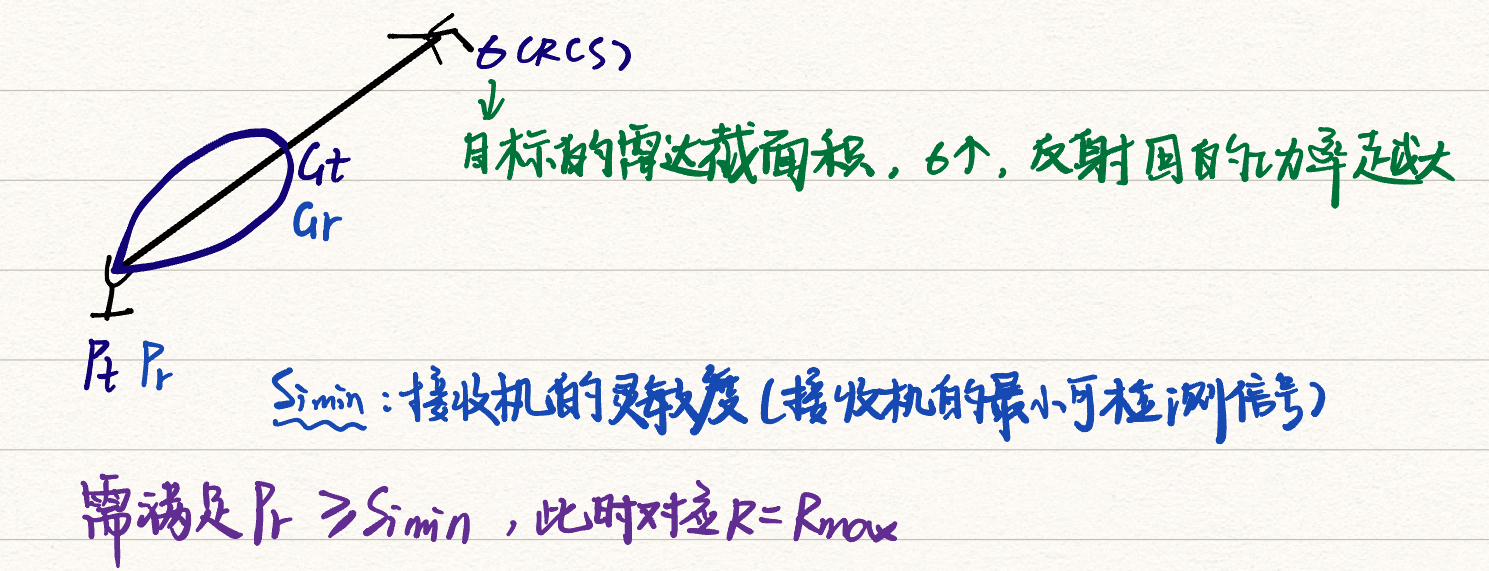 σ(RCS)
↓
目标的雷达截面积，σ↑，反射回的功率越大
Gt
Gr
Pt Pr
Simin：接收机的灵敏度（接收机的最小可检测信号）
需满足Pr ≥ Simin，此时对应R=Rmax